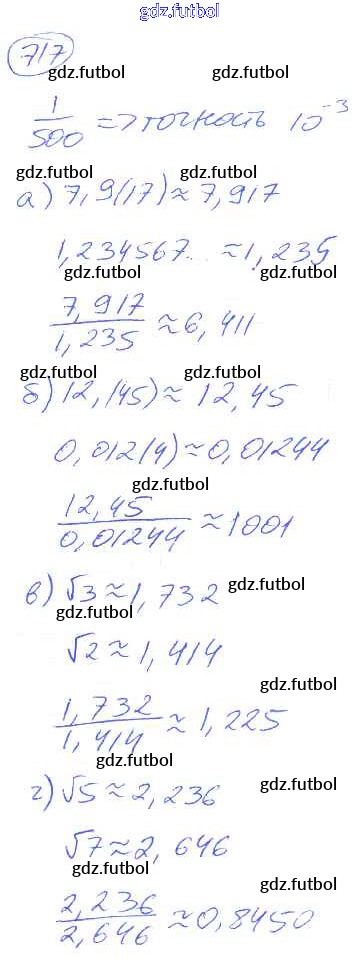 gdz.futbol
717
gdz.futbol gdz.futbol
1/500 => точность 10^-3
gdz.futbol gdz.futbol
а) 7,9(17) ≈ 7,917
1,234567... ≈ 1,235
gdz.futbol gdz.futbol
7,917/1,235 ≈ 6,411
gdz.futbol gdz.futbol
б) 12,(45) ≈ 12,45
0,012(4) ≈ 0,01244
gdz.futbol
12,45/0,01244 ≈ 1001
в) √3 ≈ 1,732 gdz.futbol
gdz.futbol
√2 ≈ 1,414
gdz.futbol
1,732/1,414 ≈ 1,225
gdz.futbol
г) √5 ≈ 2,236 gdz.futbol
√7 ≈ 2,646
gdz.futbol
2,236/2,646 ≈ 0,8450
gdz.futbol